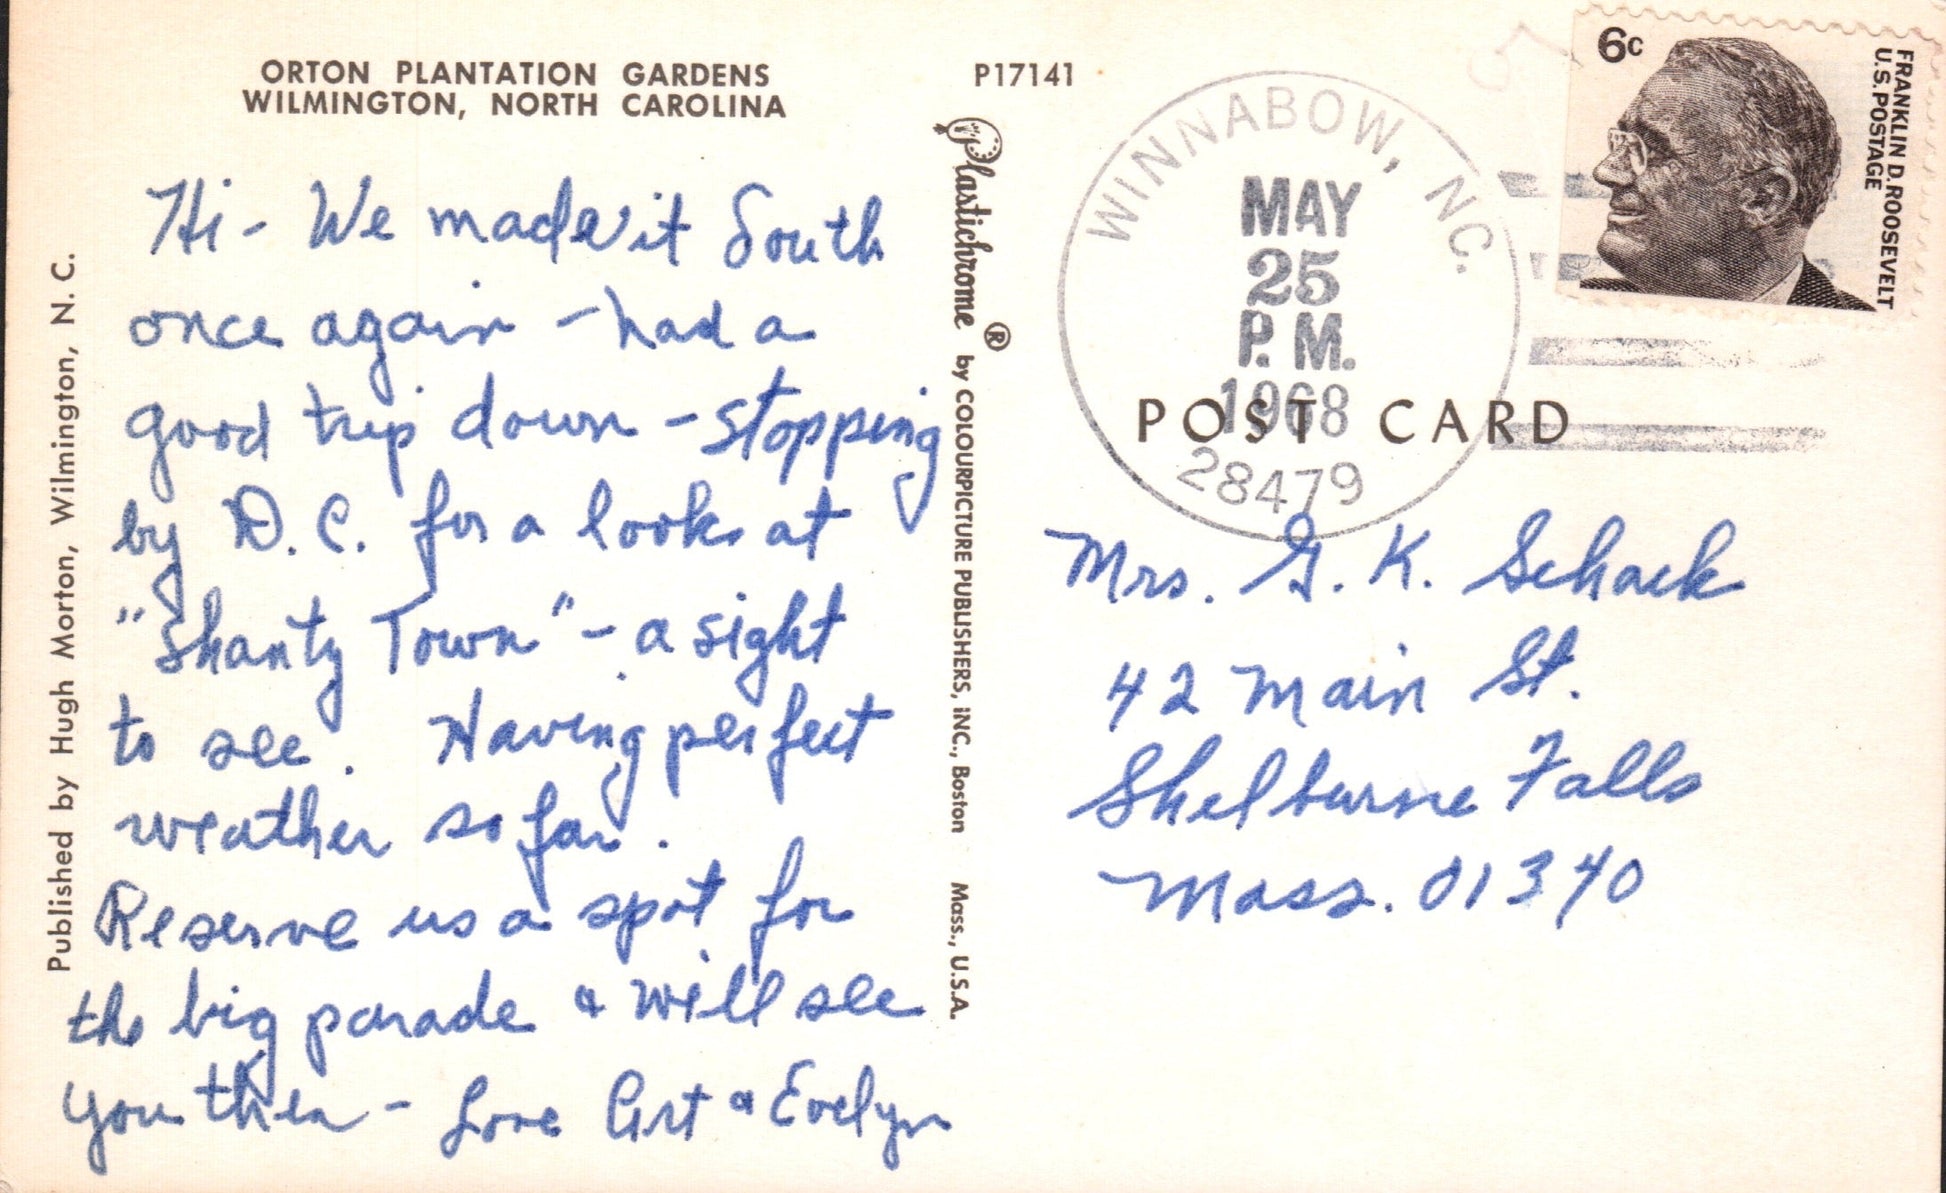 ORTON PLANTATION GARDENS
WILMINGTON, NORTH CAROLINA
P17141
Hi - We made it South
once again - had a
good trip down - stopping
by D.C. for a look at
"Shanty Town" - a sight
to see. Having perfect
weather so far.
Reserve us a spot for
the big parade & will see
you then - Love Art & Evelyn
Published by Hugh Morton, Wilmington, N. C.
Plastichrome ® by COLOURPICTURE PUBLISHERS, INC., Boston Mass., U.S.A.
WINNABOW, NC.
MAY
25
P. M.
1968
28479
6c
FRANKLIN D. ROOSEVELT
U.S. POSTAGE
POST CARD
Mrs. G. K. Schack
42 Main St.
Shelburne Falls
Mass. 01340